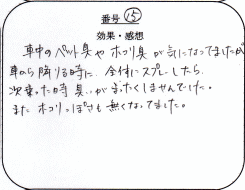 番号 15
効果・感想
車中のペット臭やホコリ臭が気になってましたが
車から降りる時に、全体にスプレーしたら、
次乗った時臭いがまったくしませんでした。
また ホコリっぽさも無くなってました。